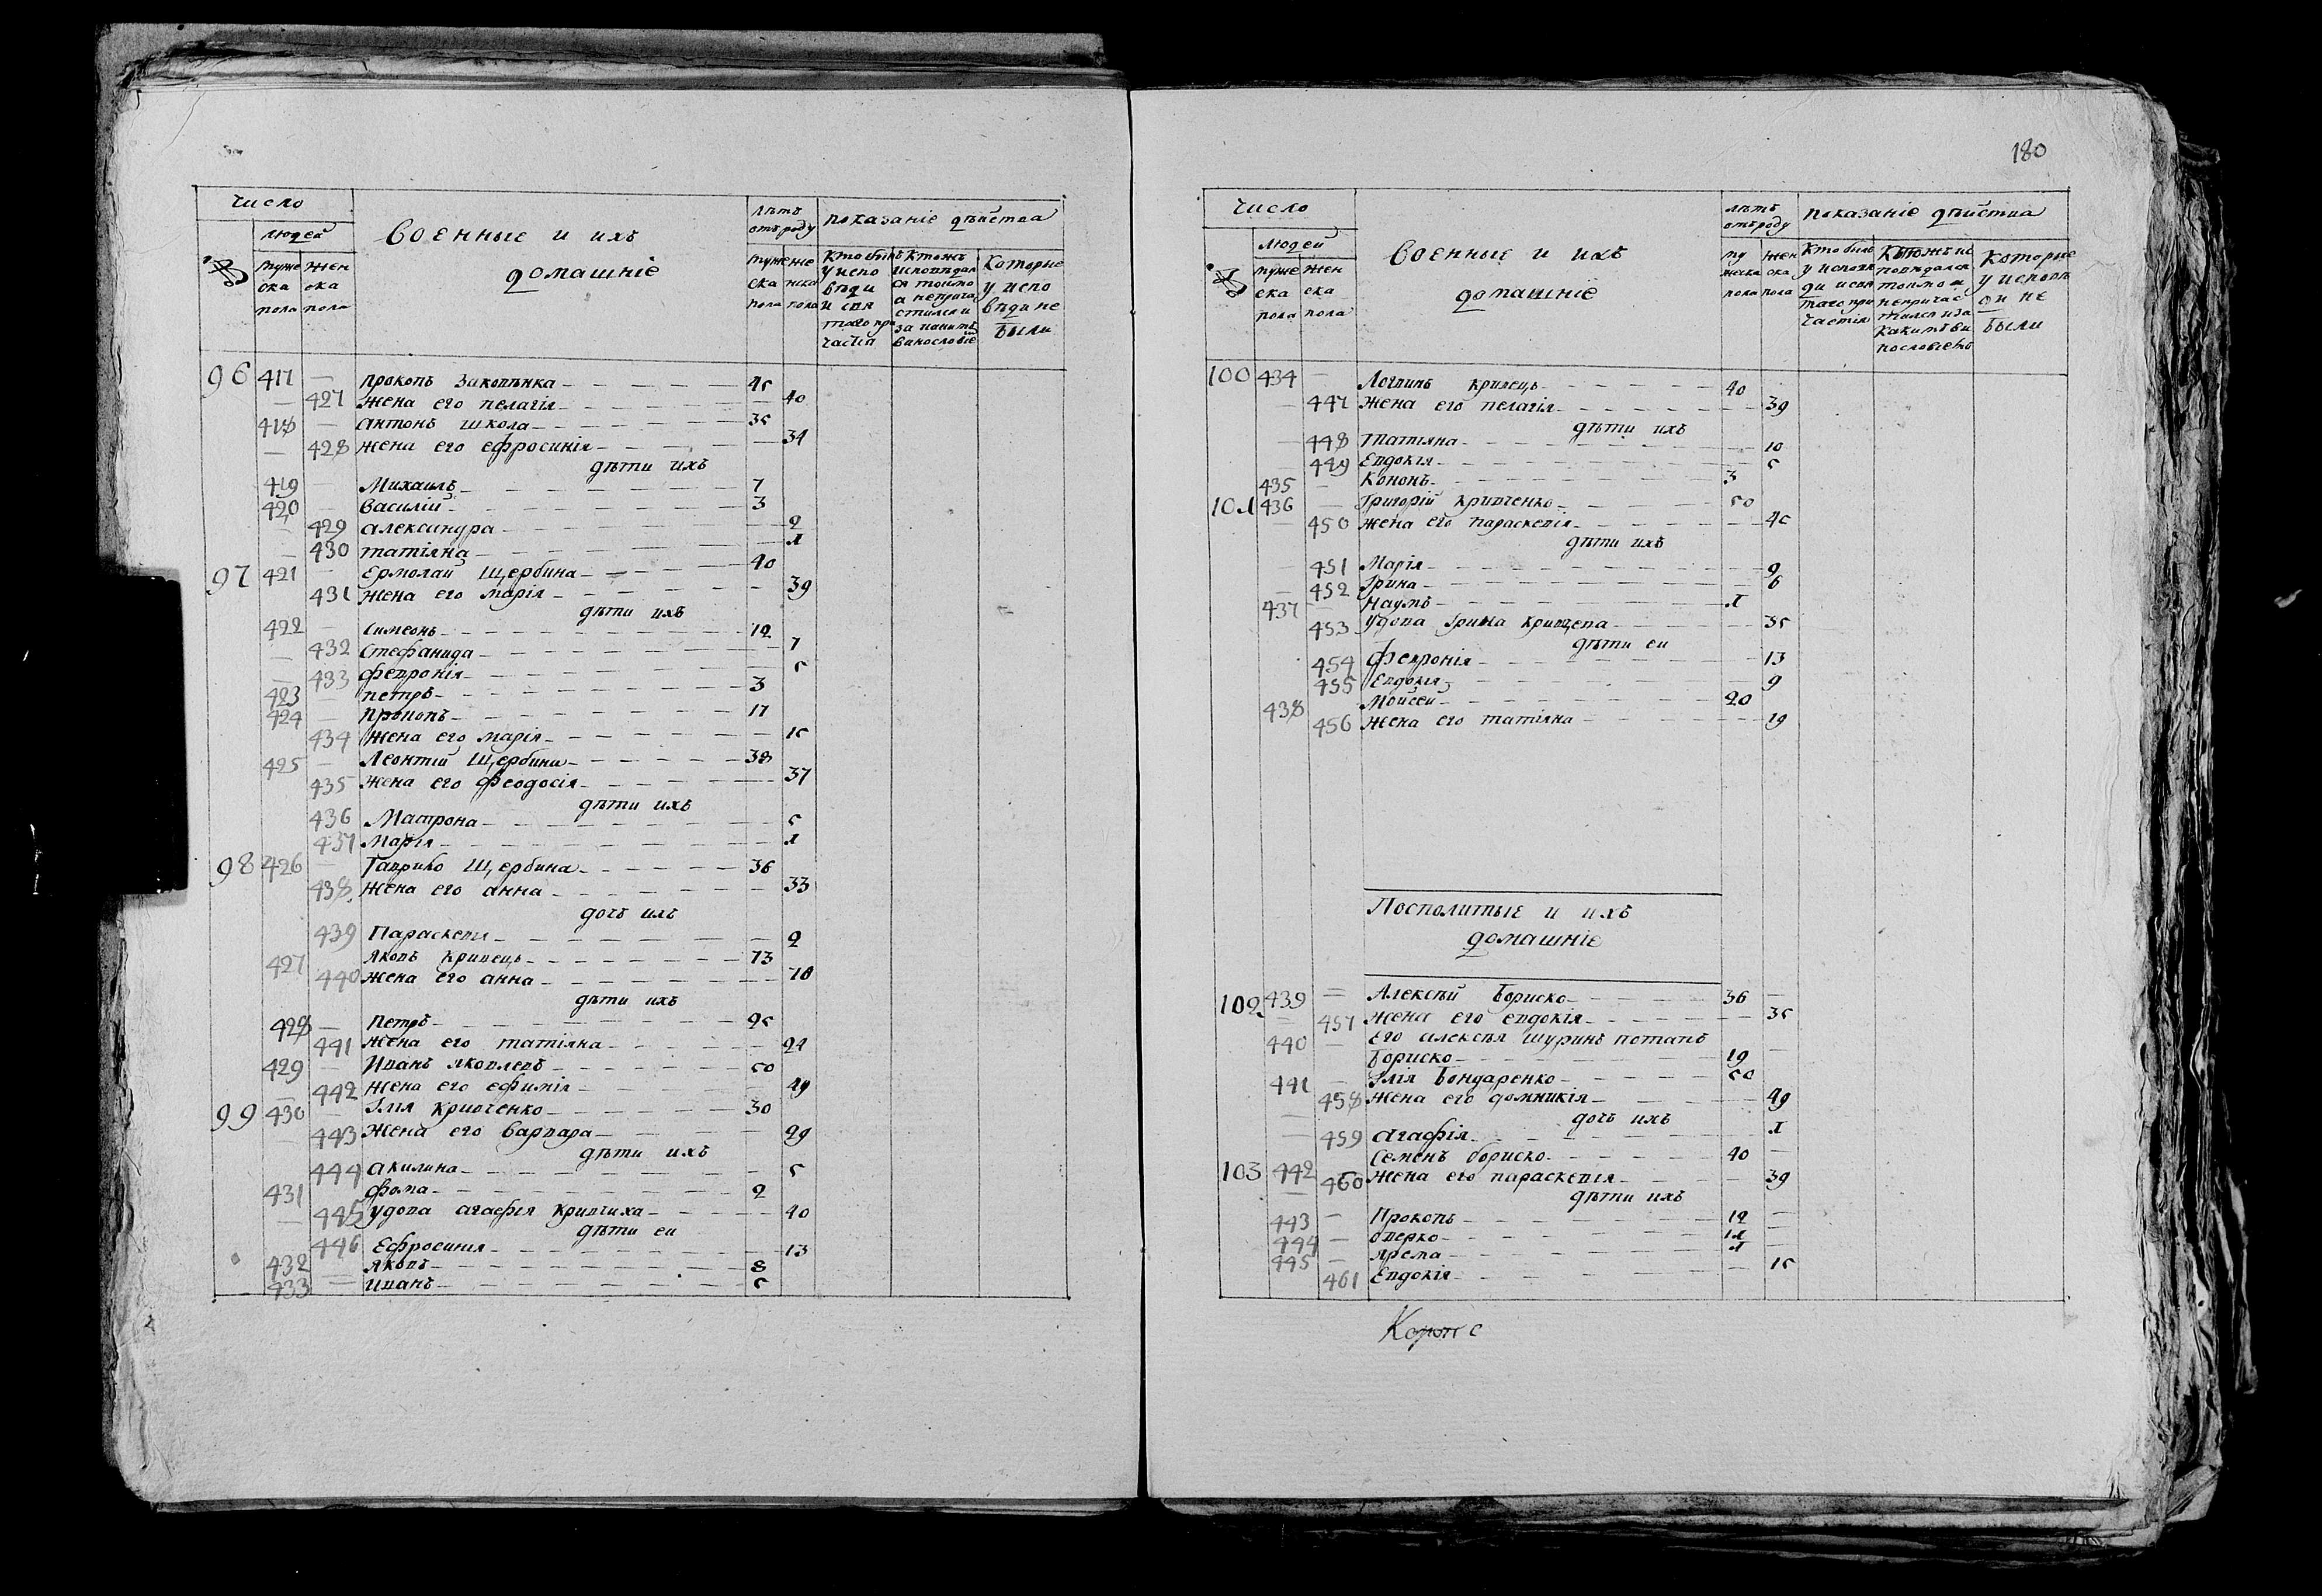 число
людей
№
муже
ска
пола
жен
ска
пола
военные и ихъ
домашніе
лѣтъ
отъ роду
муже
ска
пола
же
нска
пола
показаніе дѣйства
кто былъ
у испо
вѣди
и свя
таго при
частія
ктожъ
исповѣдал
ся токмо
а неприча
стился и
за какимъ
винословіе
которые
у испо
вѣди не
были
96 417 — прокопъ Заковѣнка 45
— 427 жена его пелагія 40
418 — антонъ школа 35
— 428 жена его ефросинія 34
дѣти ихъ
419 Михаилъ 7
420 василій 3
429 александра 2
430 татіяна 1
97 421 — Ермолай Щербина 40
431 жена его марія 39
дѣти ихъ
422 Симеонъ 12
432 Стефанида 7
433 февронія 5
423 петръ 3
424 — прокопъ 17
434 жена его марія 15
425 — Леонтій Щербина 38
435 жена его феодосія 37
дѣти ихъ
436 Матрона 5
437 Марія 1
98 426 — Гаврило Щербина 36
438 жена его анна 33
дочь ихъ
439 Параскевія 2
427 яковъ кривецъ 73
440 жена его анна 70
дѣти ихъ
428 — Петръ 25
441 жена его татіяна 24
429 — Иванъ яковлевъ 50
442 жена его ефимія 49
99 430 — Ілія кривченко 30
443 жена его варвара 29
дѣти ихъ
444 акилина 5
431 фома 2
— 445 удова агафія кривчиха 40
дѣти еи
446 Ефросинія 13
432 яковъ 8
433 иванъ 5
180
число
людей
№
муже
ска
пола
жен
ска
пола
военные и ихъ
домашніе
лѣтъ
отъ роду
му
жеска
пола
жен
ска
пола
показаніе дѣйства
кто былъ
у исповѣ
ди и свя
таго при
частія
ктожъ ис
повѣдался
токмо а
непричас
тился и за
какимъ ви
нословіемъ
которые
у исповѣ
ди не
были
100 434 — Логвинъ кривецъ 40
— 447 жена его пелагія 39
дѣти ихъ
448 татіяна 10
449 Евдокія 5
435 Кононъ 3
101 436 — Григорій кривченко 50
450 жена его параскевія 45
дѣти ихъ
451 Марія 9
452 Ірина 6
437 Наумъ 1
453 удова Ірина кривцева 35
дѣти еи
454 февронія 13
455 Евдокія 9
438 Мойсей 20
456 жена его татіяна 19
Посполитые и ихъ
домашніе
102 439 — Алексѣй Бориско 36
457 жена его евдокія 35
440 — Его алексѣя шуринъ потапъ
Бориско 19
441 — Ілія Бондаренко 50
458 жена его домникія 49
дочь ихъ
459 агафія 1
103 442 Семенъ бориско 40
— 460 жена его параскевія 39
дѣти ихъ
443 — Прокопъ 12
444 — оверко 11
445 — ярема 1
461 Евдокія 15